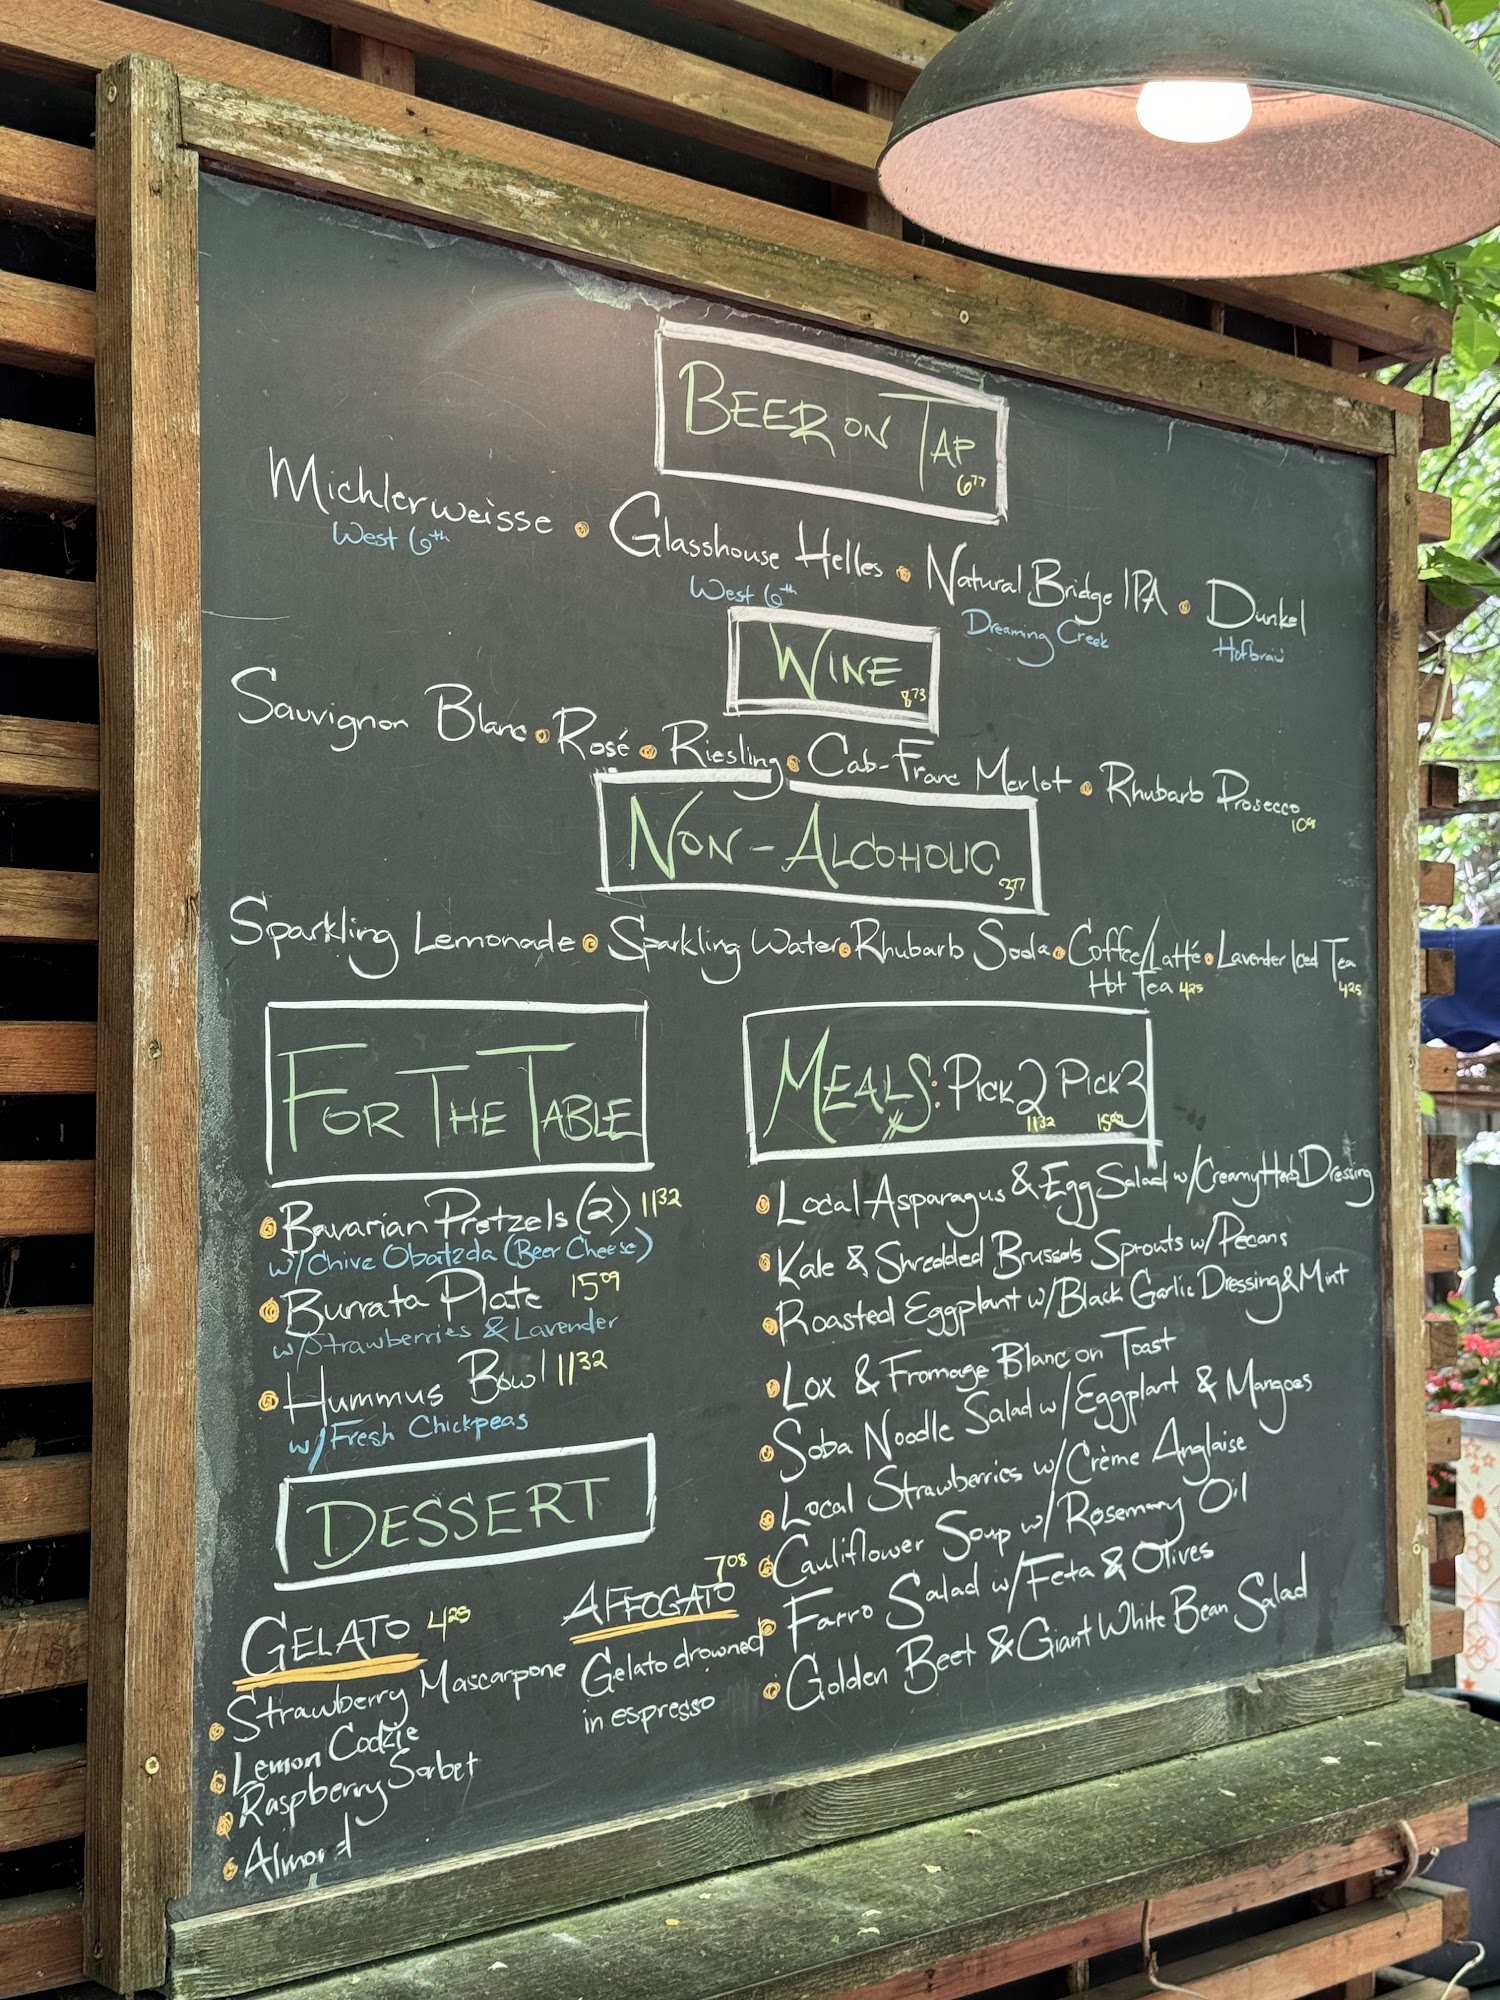 BEER ON TAP 6.77
Michlerweisse • Glasshouse Helles • Natural Bridge IPA • Dunkel
West 6th West 6th Dreaming Creek Hofbräu
WINE 8.73
Sauvignon Blanc • Rosé • Riesling • Cab-Franc Merlot • Rhubarb Prosecco
NON-ALCOHOLIC 3.77
Sparkling Lemonade • Sparkling Water • Rhubarb Soda • Coffee/Latté • Lavender Iced Tea
Hot Tea 4.25 4.25
FOR THE TABLE
• Bavarian Pretzels (2) 11.32
w/Chive Obatzda (Beer Cheese)
• Burrata Plate 15.09
w/Strawberries & Lavender
• Hummus Bowl 11.32
w/Fresh Chickpeas
DESSERT
GELATO 4.25
• Strawberry Mascarpone
• Lemon Cookie
• Raspberry Sorbet
• Almond
7.08
AFFOGATO
Gelato drowned
in espresso
MEALS: PICK 2 PICK 3
11.32 15.09
• Local Asparagus & Egg Salad w/Creamy Herb Dressing
• Kale & Shredded Brussels Sprouts w/Pecans
• Roasted Eggplant w/Black Garlic Dressing & Mint
• Lox & Fromage Blanc on Toast
• Soba Noodle Salad w/Eggplant & Mangoes
• Local Strawberries w/Crème Anglaise
• Cauliflower Soup w/Rosemary Oil
• Farro Salad w/Feta & Olives
• Golden Beet & Giant White Bean Salad